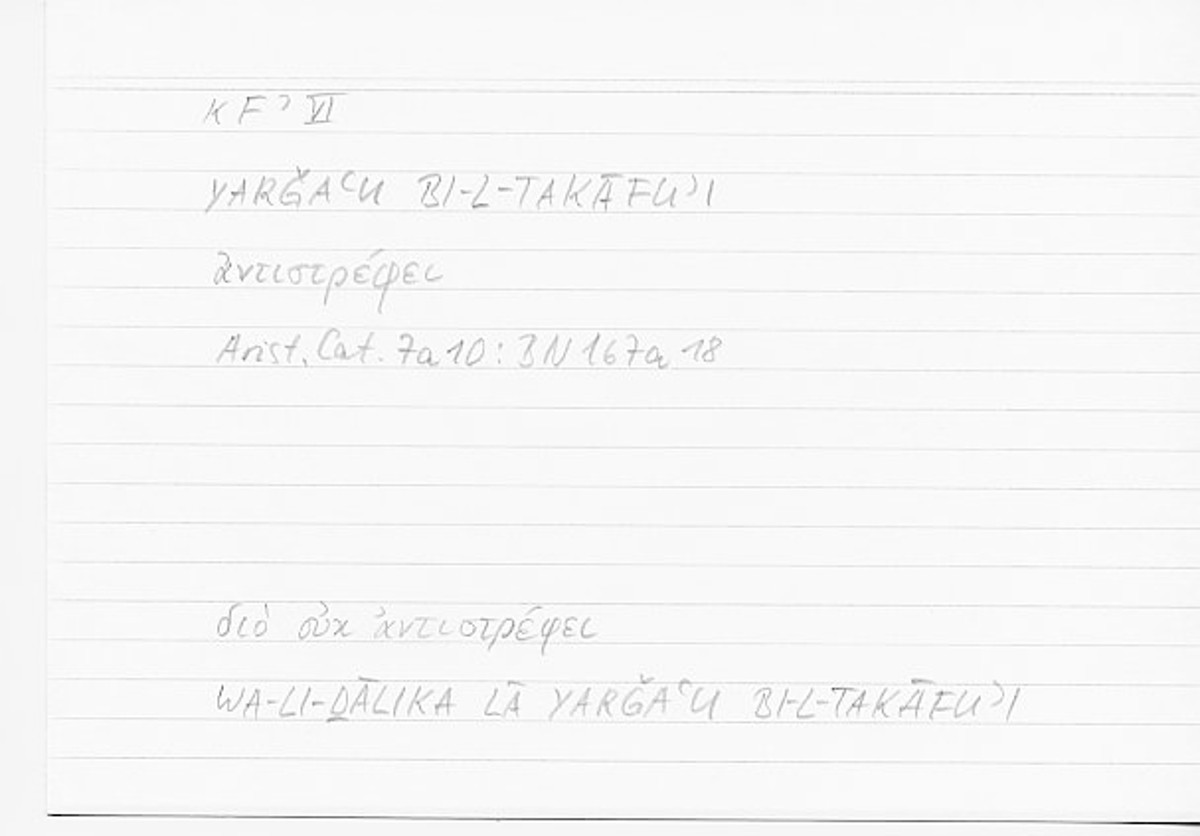 KFʾ VI
YARǦAʿU BI-L-TAKĀFUʾI
ἀντιστρέφει
Arist. Cat. 7a10 : BN 167a 18
διὸ οὐκ ἀντιστρέφει
WA-LI-ḎĀLIKA LĀ YARǦAʿU BI-L-TAKĀFUʾI